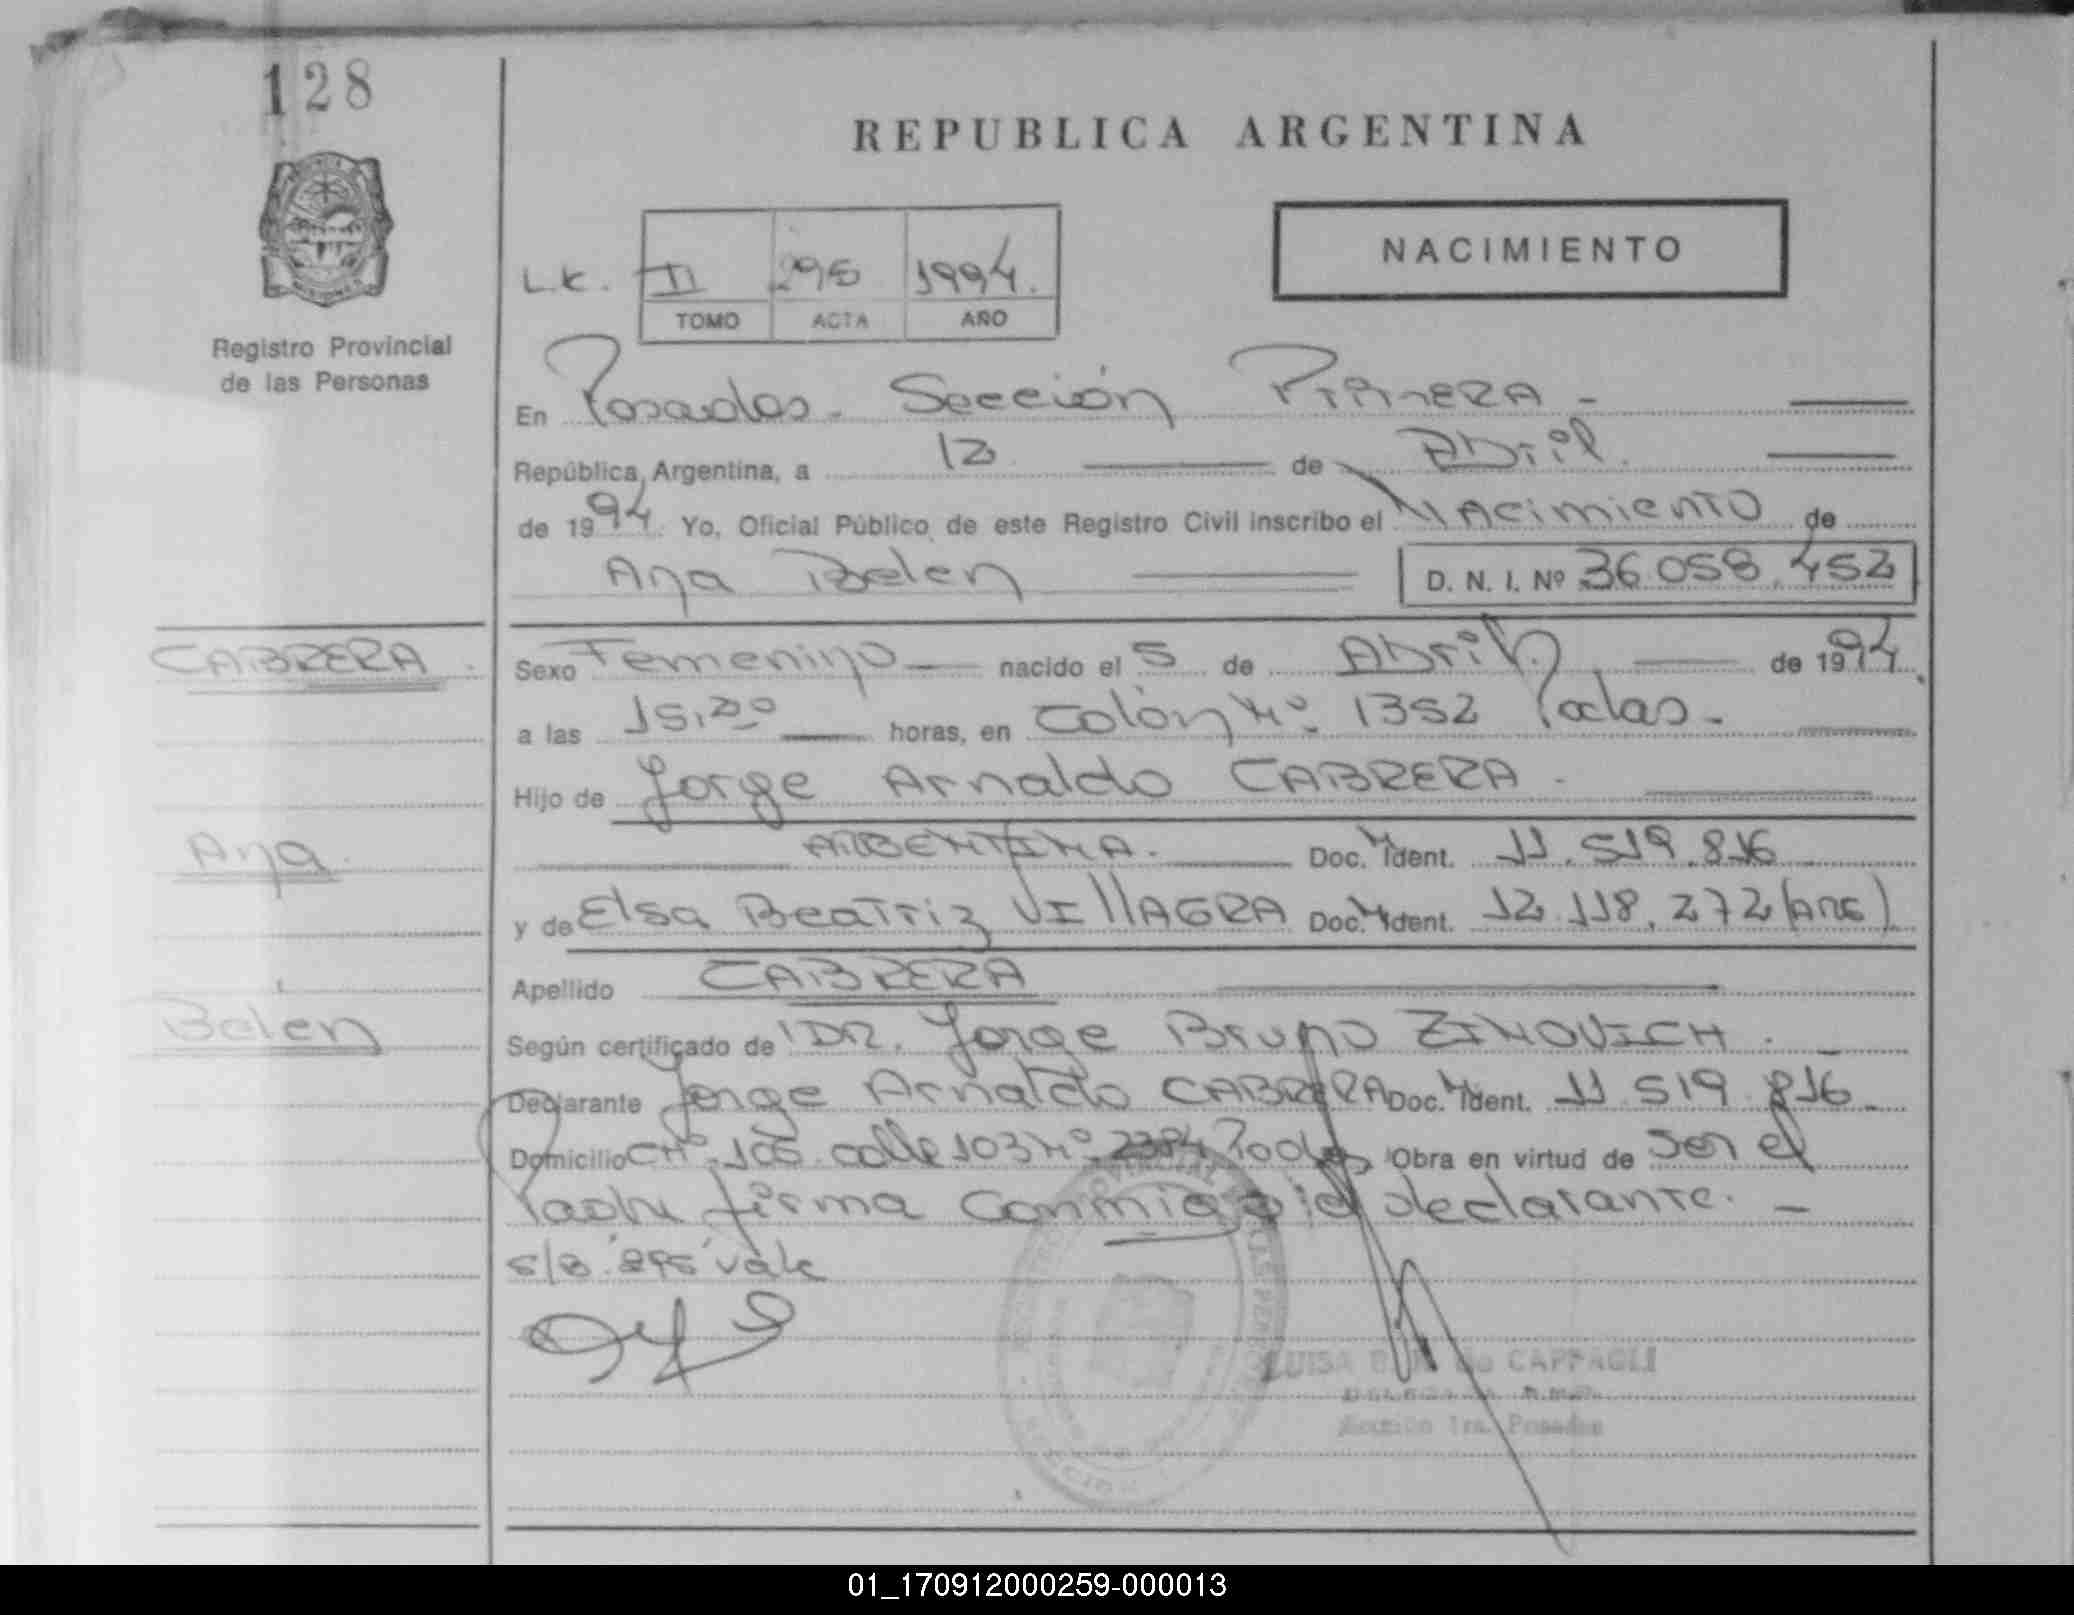 128
REPUBLICA ARGENTINA
NACIMIENTO
II 295 1994.
TOMO ACTA AÑO
Registro Provincial
de las Personas
En Posadas - Sección Primera -
República Argentina, a 12 de Abril.
de 1994. Yo, Oficial Público de este Registro Civil inscribo el Nacimiento de
Ana Belen D. N. I. Nº 36.058.452
CABRERA.
Sexo Femenino nacido el 5 de Abril de 1994.
a las 15,20 horas, en Colón Nº 1352 Pdas.-
Hijo de Jorge Arnaldo CABRERA.
Ana.
ARGENTINA. Doc. Ident. 11.519.816
y de Elsa Beatriz VIllAGRA Doc. Ident. 12.118.272 (ARG)
Apellido CABRERA
Belén
Según certificado de DR. Jorge Bruno ZINOVICH.
Declarante Jorge Arnaldo CABRERA Doc. Ident. 11.519.816-
Domicilio CHº 105 calle 103 Nº 2384 Obra en virtud de ser el
Padre firma conmigo el declarante. -
s/b "295" vale
LUISA de CAPPAGLI
Sección 1ra. Posadas
01_170912000259-000013